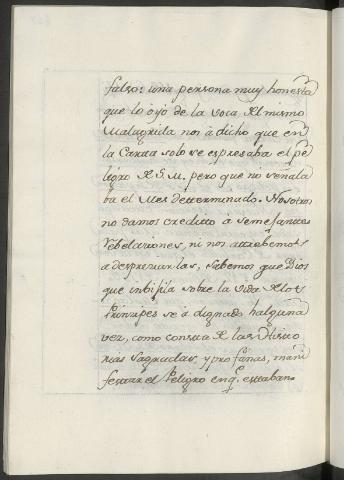 falso: una persona muy honesta
que lo oyó de la voca del mismo
Malagrida nos á dicho que en
la Carta solo se espresaba el pe
ligro de S. M. pero que no señala
ba el Mes determinado. Nosotros
no damos creditto á semejantes
rebelaciones, ni nos attrebemos
a despreciarlas, sabemos que Dios
que imbijila sobre la vida de los
Prinsipes se á dignado halguna
vez, como consta de las Histo
rias sagradas, y profanas, mani
festar el Peligro enq.e esttaban